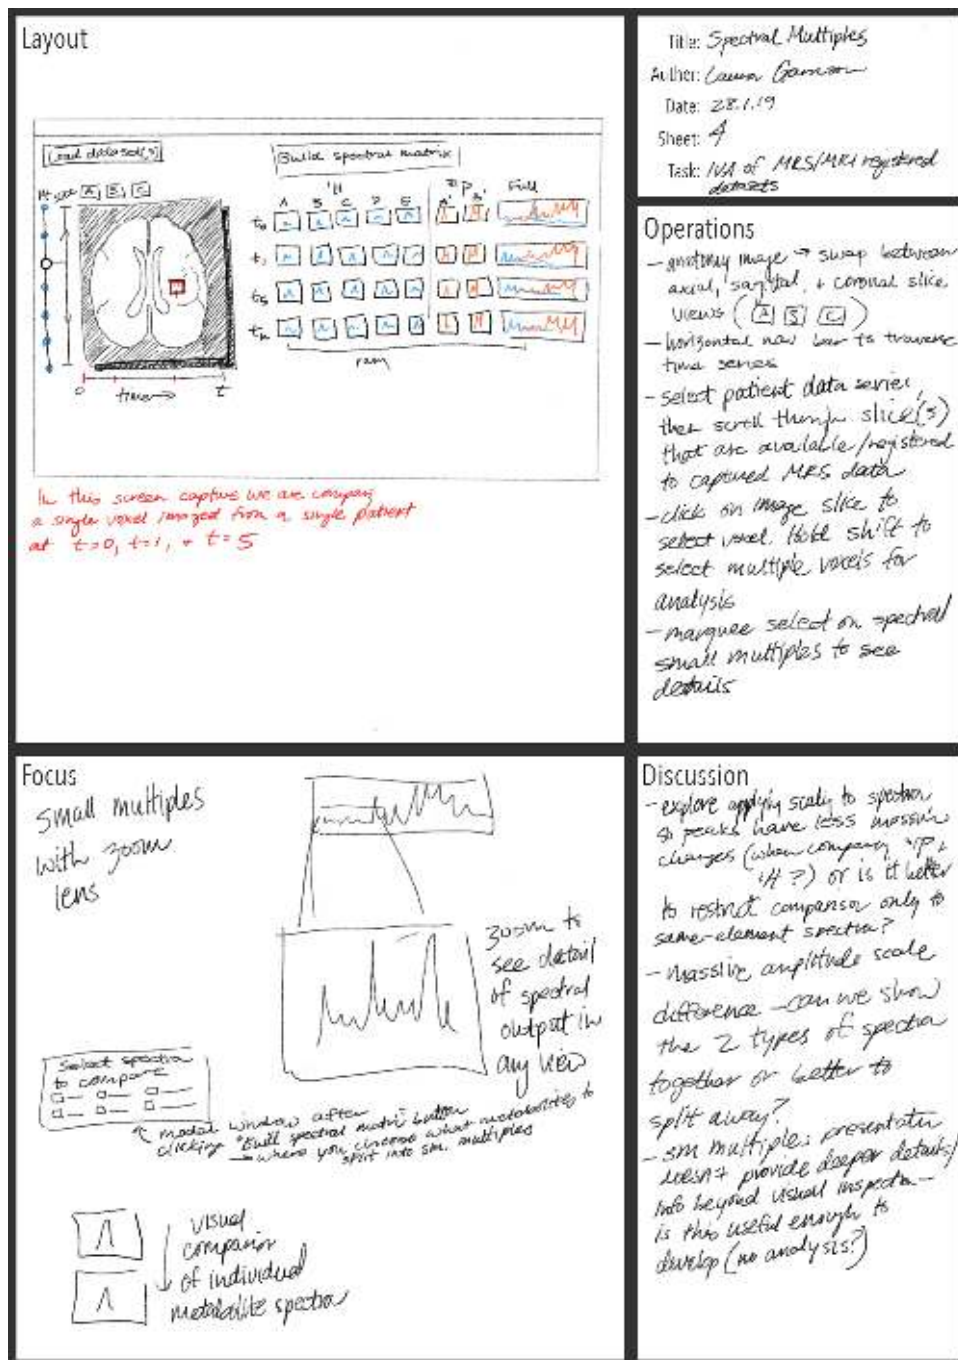 Layout
Load dataset(s)
Build spectral matrix
A B C
¹H
³¹P
Full
A B C D E
t₀
t₁
t₅
tₙ
raw
0 time→ t
In this screen capture we are compary
a single voxel imaged from a single patient
at t=0, t=1, + t=5
Title: Spectral Multiples
Author: Laura Garrison
Date: 28.1.19
Sheet: 4
Task: IVA of MRS/MRI registered
datasets
Operations
- anatomy image → swap between
axial, sagittal, + coronal slice
views (A S C)
- horizontal nav bar to traverse
time series
- select patient data series,
then scroll through slice(s)
that are available/registered
to captured MRS data
- click on image slice to
select voxel. Hold shift to
select multiple voxels for
analysis
- marquee select on spectral
small multiples to see
details
Focus
small multiples
with zoom
lens
zoom to
see detail
of spectral
output in
any view
Select spectra
to compare
modal window after
clicking "Build spectral matrix" button
→ where you choose what metabolites to
split into sm. multiples
visual
comparison
of individual
metabolite spectra
Discussion
- explore applying scaling to spectra
so peaks have less massive
changes (when company ³¹P,
¹H?) or is it better
to restrict comparison only to
same-element spectra?
- Massive amplitude scale
difference - can we show
the 2 types of spectra
together or better to
split away?
- sm multiples presentation
doesn't provide deeper details/
info beyond visual inspection -
is this useful enough to
develop (no analysis?)